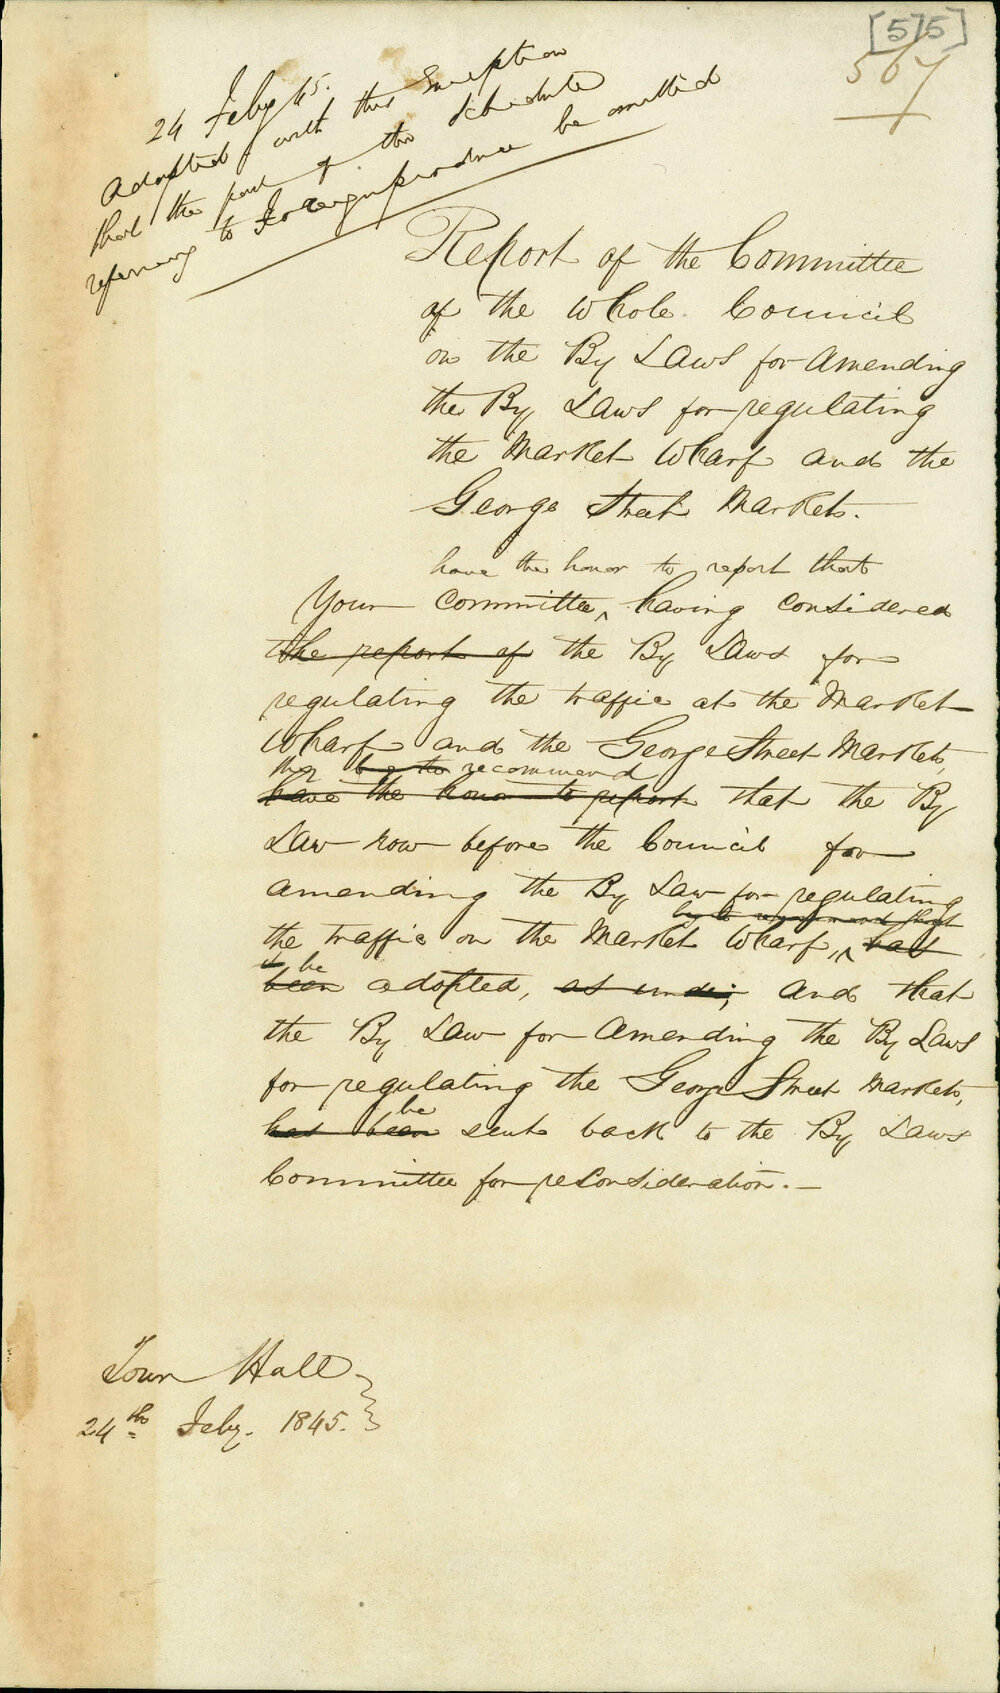 [575]
567
24 Feby 45.
Adopted with this exception
that the part of the Schedule
referring to Foreign produce be omitted
Report of the Committee
of the Whole Council
on the By Laws for amending
the By Laws for regulating
the Market Wharf and the
George Street Markets.
have the honor to report that
Your Committee, ^ having considered
the report of the By Laws for
regulating the traffic at the Market
Wharf and the George Street Markets,
they beg to recommend
have the honor to report that the By
Law now before the Council for
amending the By Law for regulating
beg to recommend that
the traffic on the Market Wharf, ^ has
be
been adopted, as under; and that
the By Law for amending the By Laws
for regulating the George Street Markets,
be
has been sent back to the By Laws
Committee for reconsideration.—
Town Hall
24th Feby. 1845.